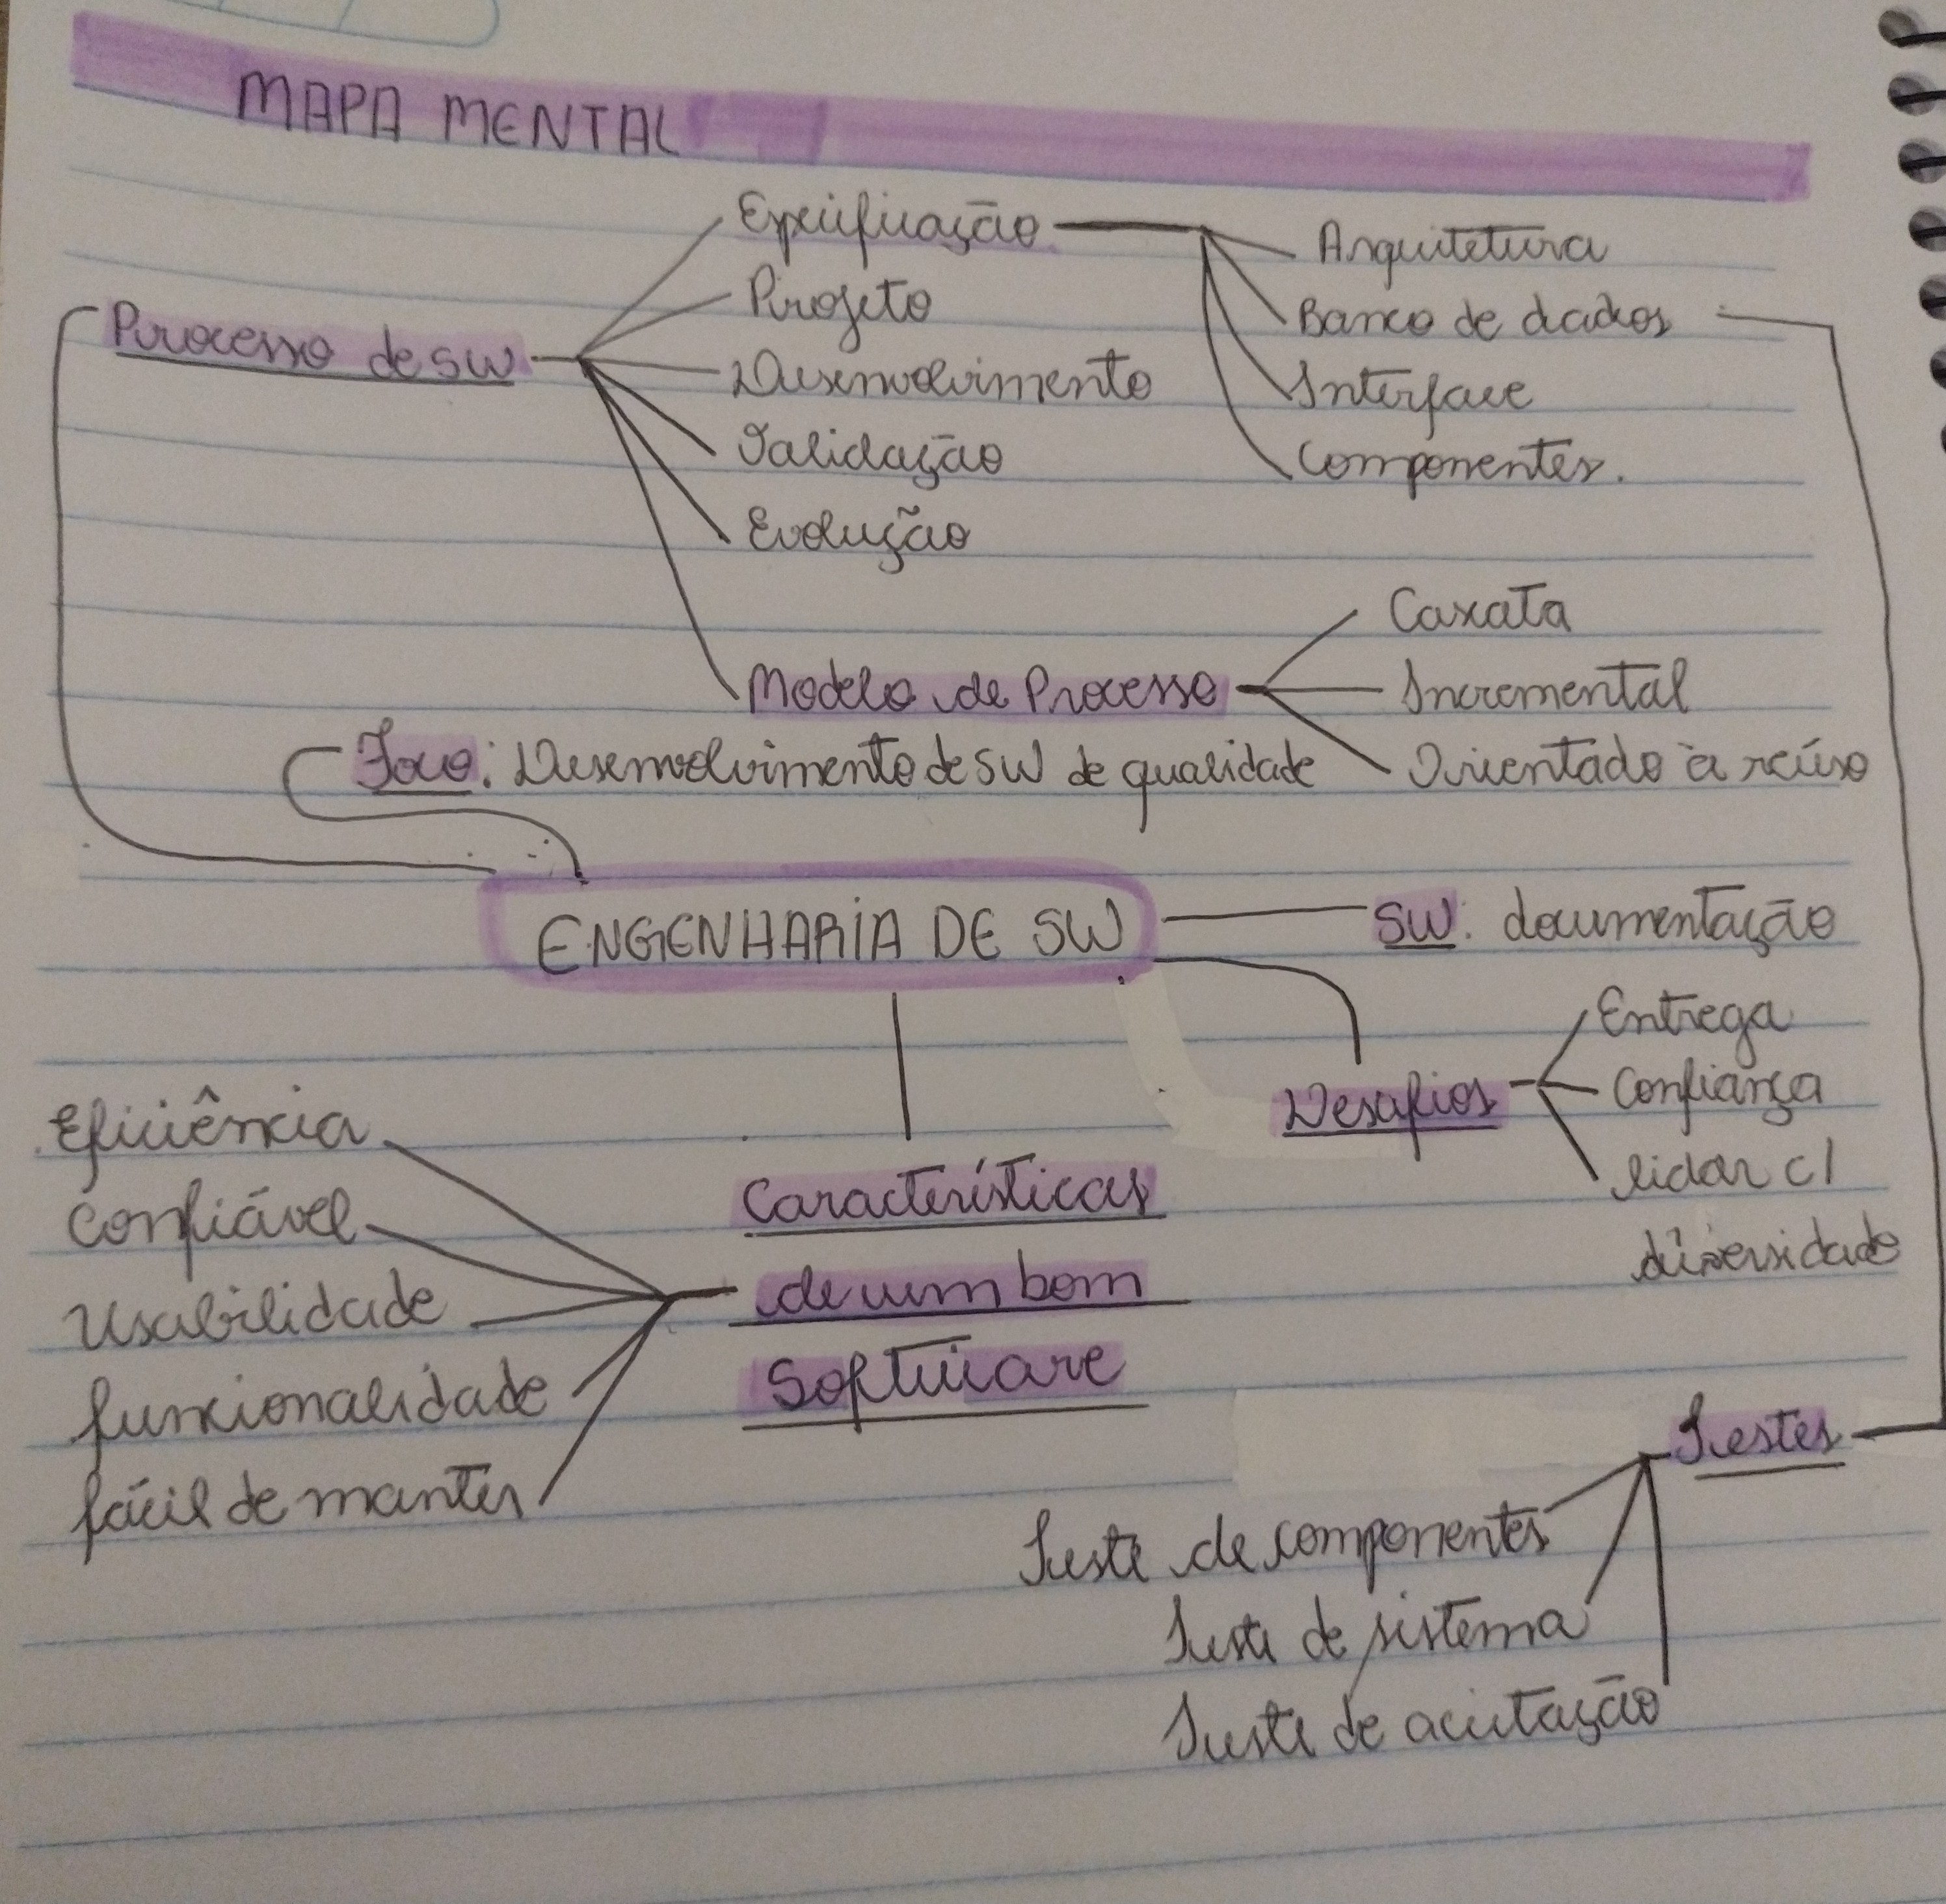 MAPA MENTAL
Processo de SW
Especificação
Projeto
Desenvolvimento
Validação
Evolução
Modelo de Processo
Arquitetura
Banco de dados
Interface
Componentes.
Caxata
Incremental
Orientado à reúso
Foco: Desenvolvimento de SW de qualidade
ENGENHARIA DE SW
SW: documentação
Desafios
Entrega
Confiança
lidar c/
diversidade
Características
de um bom
Software
Eficiência
Confiável
Usabilidade
funcionalidade
fácil de manter
Testes
Teste de componentes
Teste de sistema
Teste de aceitação